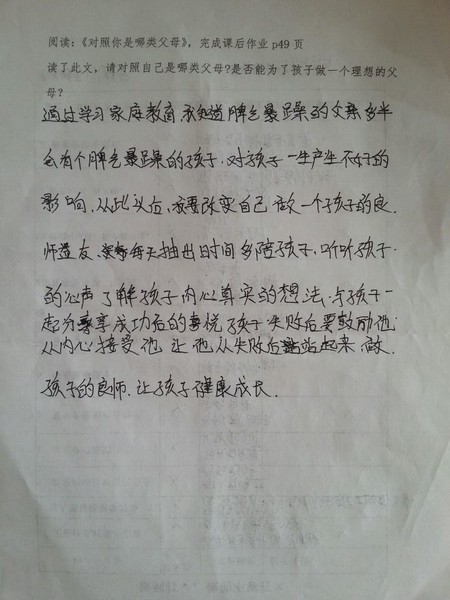 阅读:《对照你是哪类父母》,完成课后作业 p49 页
读了此文,请对照自己是哪类父母?是否能为了孩子做一个理想的父
母?
通过学习家庭教育我知道脾气暴躁的父亲多半
会有个脾气暴躁的孩子,对孩子一生产生不好的
影响,从此以后,我要改变自己做一个孩子的良.
师益友、每天抽出时间多陪孩子,听听孩子.
的心声了解孩子内心真实的想法、与孩子一
起分享成功后的喜悦孩子失败后要鼓励他.
从内心接受他让他从失败后站起来做.
孩子的良师.让孩子健康成长.